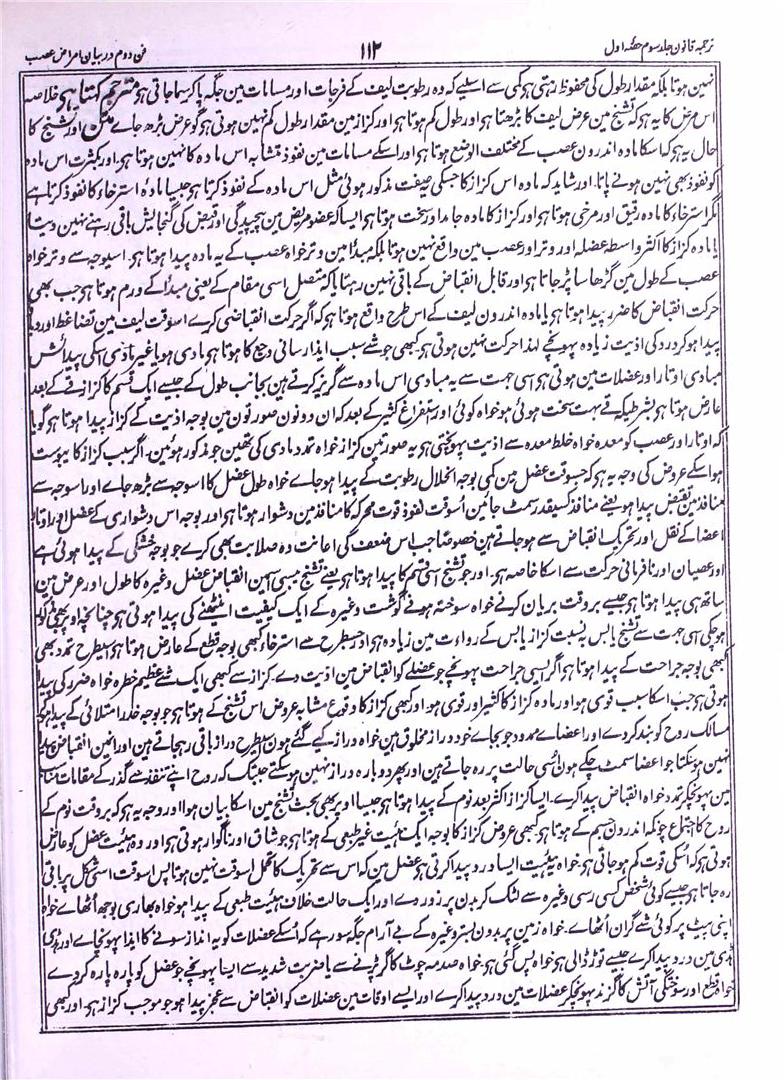 ترجمہ قانون جلد سوم حصہ اول ۱۱۲ فن دوم در بیان امراض عصب
نہین ہوتا بلکہ مقدار طول کی محفوظ رہتی ہو کمی سے اسلیے کہ وہ رطوبت لیف کے فرجات اور مسامات مین جگہ پاکر سما جاتی ہو مترجم کہتا ہو خلاصہ
اس مرض کا یہ ہو کہ تشنج مین عرض لیف کا بڑھتا ہو اور طول کم ہوتا ہو اور کزاز مین مقدار طول کم نہین ہوتی ہو گو عرض بڑھ جاے ممکن اور تشنج کا
حال یہ ہو کہ اسکا مادہ اندرون عصب کے مختلف الوضع ہوتا ہو اور اسکے مسامات مین نفوذ متشابہ اس مادہ کا نہین ہوتا ہو اور بکثرت اس مادہ
کو نفوذ بھی نہین ہونے پاتا اور شاید کہ مادہ اس کزاز کا جسکی صفت مذکور ہوئی مثل اس مادہ کے نفوذ کرتا ہو جیسا مادہ استرخاء کا نفوذ کرتا ہے
مگر استرخاء کا مادہ رقیق اور مرخی ہوتا ہو اور کزاز کا مادہ جامد اور سخت ہوتا ہو ایسا کہ عضو مریض مین پیچیدگی اور قبض کی گنجایش باقی رہنے نہین دیتا
یا مادہ کزاز کا اکثر واسطہ عضلہ اور وتر اور عصب مین واقع نہین ہوتا بلکہ مبدأ مین وتر خواہ عصب کے یہ مادہ پیدا ہوتا ہو۔ اسیوجہ سے وتر خواہ
عصب کے طول مین گڑھا سا پڑ جاتا ہو اور قابل انقباض کے باقی نہین رہتا یا کہ متصل اسی مقام کے یعنی مبدأ کے ورم ہوتا ہو جب بھی
حرکت انقباض کا ضرر پیدا ہوتا ہو یا مادہ اندرون لیف کے اس طرح واقع ہوتا ہو کہ اگر حرکت انقباضی کرے اسوقت لیف مین تضاغط اور دبا
پیدا ہو کر درد کی اذیت زیادہ پہونچے لہذا حرکت نہین ہوتی ہو کبھی جو شے سبب ایذا رسانی وجع کا ہوتا ہو مادی ہو یا غیر مادی اسکی پیدائش
مبادی اوتار اور عضلات مین ہوتی ہو اسی جہت سے یہ مبادی اس مادہ سے گریز کرتے ہین بجانب طول کے جیسے ایک قسم کا کزاز قے کے بعد
عارض ہوتا ہو بشرطیکہ قے بہت سخت ہوئی ہو خواہ کوئی اور استفراغ کثیر کے بعد کہ ان دونون صورتون مین بوجہ اذیت کے کزاز پیدا ہوتا ہو گویا
کہ اوتار اور عصب کو معدہ خواہ خلط معدہ سے اذیت پہونچتی ہو یہ صورتین کزاز خواہ تمدد مادی کی تھین جو مذکور ہوئین۔ اگر سبب کزاز کا یبوست
ہو اسکے عروض کی وجہ یہ ہو کہ جسوقت عضل مین کمی بوجہ انحلال رطوبت کے پیدا ہو جاے خواہ طول عضل کا اسوجہ سے بڑھ جاے اور اسوجہ سے
منافذ مین تقبض پیدا ہو یعنے منافذ کسیقدر سمٹ جائین اُسوقت نفوذ قوت محرکہ کا منافذ مین دشوار ہوتا ہو اور بوجہ اس دشواری کے عضل اور اوتار
اعضا کے نقل اور تحریک انقباض سے عاجز ہو جاتے ہین خصوصًا جب اس ضعف کی اعانت وہ صلابت بھی کرے جو بوجہ خشکی کے پیدا ہوئی ہے
اور عصیان اور نافرمانی حرکت سے اسکا خاصہ ہو۔ اور جو تشنج اسی قسم کا پیدا ہوتا ہو یعنے تشنج یبسی اسمین انقباض عضل وغیرہ کا طول اور عرض مین
ساتھ ہی پیدا ہوتا ہو جیسے بروقت بریان کرنے خواہ سوختہ ہونے گوشت وغیرہ کے ایک کیفیت اینٹھنے کی پیدا ہوتی ہو چنانچہ اوپر بھی گو
ہوچکی اسی جہت سے تشنج یابس بہ نسبت کزاز یابس کے رداءت مین زیادہ ہو اور جسطرح سے استرخاء کبھی بوجہ قطع کے عارض ہوتا ہو اسیطرح تمدد بھی
کبھی بوجہ جراحت کے پیدا ہوتا ہو اگر ایسی جراحت پہونچے جو عضلے کو انقباض مین اذیت دے۔ کزاز سے کبھی ایک شے عظیم خطرہ خواہ ضرر کی پیدا
ہوتی ہو جب اسکا سبب قوی ہو اور مادہ کزاز کا کثیر اور قوی ہو۔ اور کبھی کزاز کا وقوع مشابہ عروض اس تشنج کے ہوتا ہو جو بوجہ خلد امتلائی کے پیدا ہوکر
مسالک روح کو بند کردے اور اعضاے ممدود جو بجاے خود دراز مخلوق ہین خواہ دراز کیے گئے ہون اسیطرح دراز باقی رہجاتے ہین اور انمین انقباض پیدا
نہین ہوسکتا جو اعضا سمٹ چکے ہون اُسی حالت پر رہ جاتے ہین اور پھر دوبارہ دراز نہین ہوسکتے جبتک کہ روح اپنے تنفذ سے گذر کے مقامات مناسبہ
مین پہونچکر تمدد خواہ انقباض پیدا کرے۔ ایسا کزاز اکثر بعد نوم کے پیدا ہوتا ہو جیسا اوپر بھی بحث تشنج مین اسکا بیان ہوا اور وجہ یہ ہو کہ بروقت نوم کے
روح کا اجتماع چونکہ اندرون جسم کے ہوتا ہو کبھی عروض کزاز کا بوجہ ایک ہیئت غیر طبعی کے ہوتا ہو جو شاق اور ناگوار ہوتی ہو اور وہ ہیئت عضل کو عارض
ہوتی ہو کہ اسکی قوت کم ہو جاتی ہو خواہ یہ ہیئت ایسا درد پیدا کرتی ہو عضل مین کہ اس سے تحریک کا تحمل اسوقت نہین ہوتا پس اسوقت اسی شکل پر باقی
رہ جاتا ہو جیسے کوئی شخص کسی رسی وغیرہ سے لٹک کر بدن پر زور دے اور ایک حالت خلاف ہیئت طبعی کے پیدا ہو خواہ بھاری بوجھ اُٹھاے خواہ
اپنی پیٹ پر کوئی شے گران اُٹھاے۔ خواہ زمین پر بدون بستر وغیرہ کے بے آرام جگہ سو رہے کہ اُسکے عضلات کو یہ انداز سونے کا ایذا پہونچاے اور ہڈی
ہڈی مین درد پیدا کرے جیسے توڑ ڈالی ہو خواہ پس گئی ہو خواہ صدمہ چوٹ کا گر پڑنے سے یا ضربت شدید سے ایسا پہونچے جو عضل کو پارہ پارہ کردے
خواہ قطع اور سوختگی آتش کا گزند پہونچکر عضلات مین درد پیدا کرے اور ایسے اوقات مین عضلات کو انقباض سے عجز پیدا ہو جو موجب کزاز ہو۔ اور کبھی